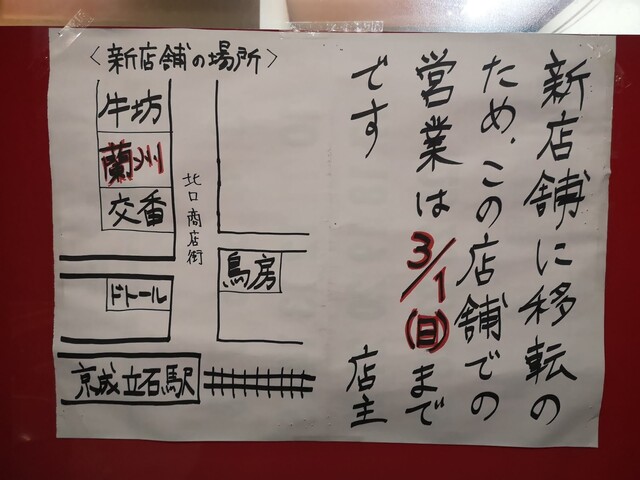 新店舗に移転の
ため、この店舗での
営業は3/1(日)まで
です
店主
〈新店舗の場所〉
牛坊
蘭州
交番
北口商店街
鳥房
ドトール
京成立石駅